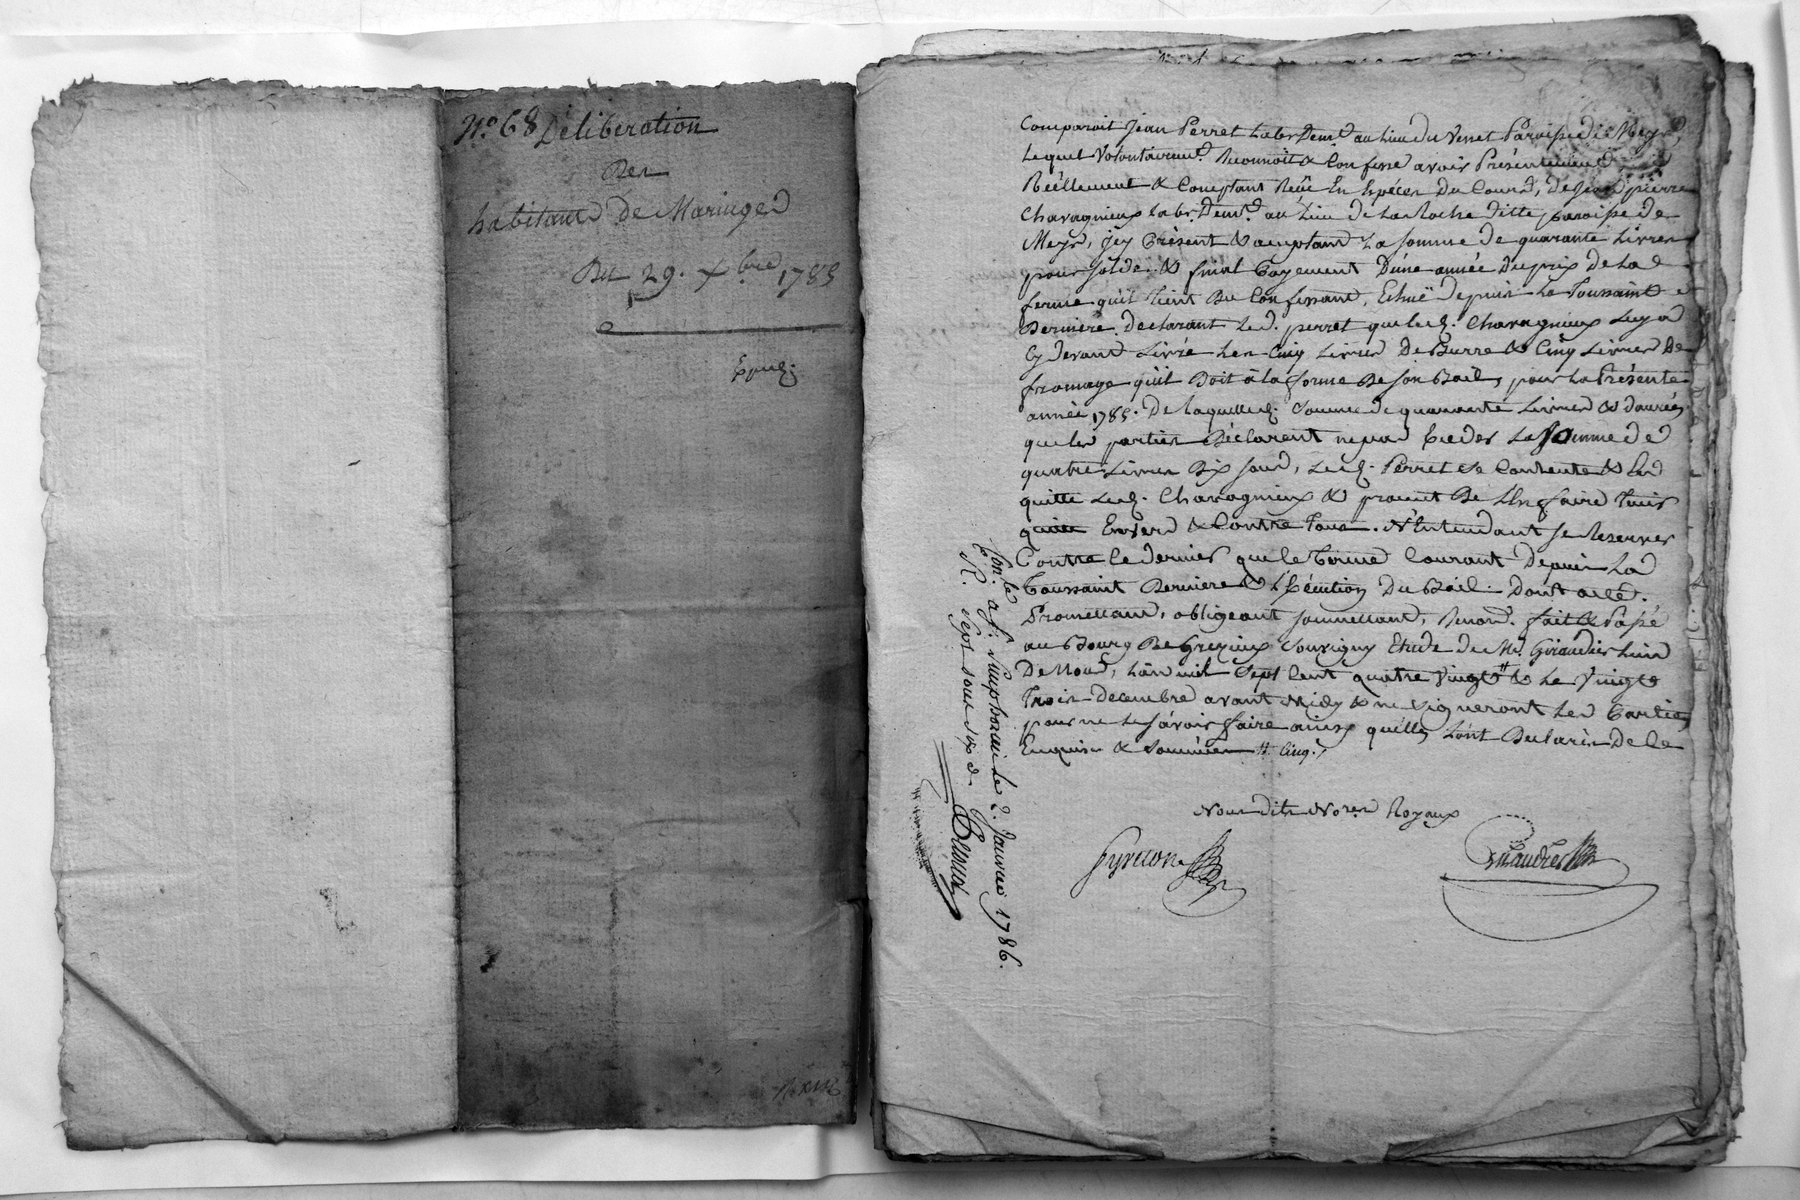 N.o 68 Délibération
Des
habitants de Maringes
Du 29. Xbre 1785
Expéd.
Comparoit Jean Perret Labr. Demt. au Lieu du Venet Paroisse de Meys,
Lequel Volontairemt. Reconnoit & Confesse avoir Présentement
Réellement & Comptant Reçu En Espèces Du Cours, de Jean pierre
Chavagnieux Labr. Demt. au Lieu de La Roche ditte paroisse de
Meys, icy Présent & acceptant La somme de quarante Livres
pour solde & final Payement D'une année Du prix de La
ferme qu'il tient Du Confessant, Echue depuis La Toussaint
Derniere. Declarant Led. perret que led. Chavagnieux Luy a
Cy devant Livré Les Cinq Livres De Burre & Cinq Livres De
fromage qu'il Doit à la forme De son Bail, pour La Présente
année 1785. De laquelle d. somme de quarante Livres & danrées
que les parties Déclarent ne pas Exceder La somme de
quatre Livres Dix sous, Led. Perret se Contente & En
quitte Led. Chavagnieux & promet De L'En faire tenir
quitte Envers & Contre Tous. N'Entendant se Reserver
Contre le dernier que le Terme Courant Depuis La
Toussaint Derniere & L'Exécution Du Bail. Dont acte.
Promettant, obligeant, soumettant, Renonc. fait & Passé
au Bourg De Grezieux Souvigny Etude de Me. Giraudier L'un
De Nous, L'an mil sept Cent quatre vingt # & Le Vingt
Trois Decembre avant Midy & ne signeront Les Parties
pour ne Le sçavoir faire ainsy qu'elles L'ont Declaré De ce
Enquises & sommées # Cinq./
Nous dits Nores Royaux
Giraudier
Con.lé a St. Simphorien le 2. Janvier 1786.
R. sept sous six d.